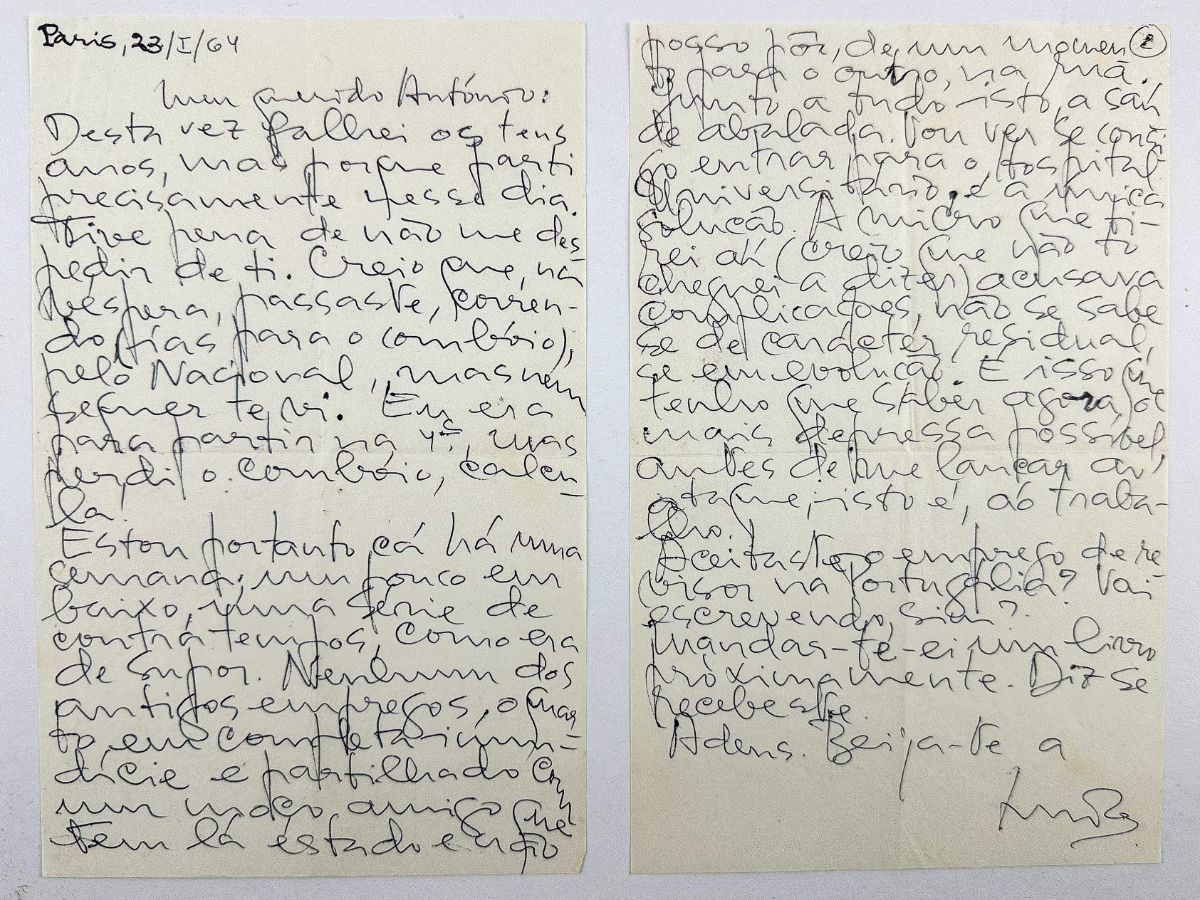 Paris, 23/I/64
Meu querido António:
Desta vez falhei os teus
anos, mas porque parti
precisamente nesse dia.
Tive pena de não me des
pedir de ti. Creio que, na
véspera, passaste, (corren-
do ías para o comboio),
pelo Nacional, mas nem
sequer te vi. Eu era
para partir na 4ª, mas
perdi o comboio, calcu-
la.
Estou portanto cá há uma
semana, um pouco em
baixo, uma série de
contratempos, como era
de supor. Nenhum dos
antigos empregos, o quar
to em completa imun-
dície e partilhado com
um moço amigo que
tem lá estado e não
2
posso pôr, de um momen
to para o outro, na rua.
Junto a tudo isto, a saú
de abalada. Vou ver se consi
go entrar para o Hospital
Universitário, é a única
solução. A micro que ti-
rei aí (creio que não to
cheguei a dizer) acusava
complicações, não se sabe
se de carácter residual,
se em evolução. É isso que
tenho que saber agora, o
mais depressa possível,
antes de me lançar ao
ataque, isto é, ao traba-
lho.
Aceitaste o emprego de re-
visor na Portugália? Vai
escrevendo, sim?
Mandar-te-ei um livro
próximamente. Diz se
recebeste.
Adeus. Beija-te a